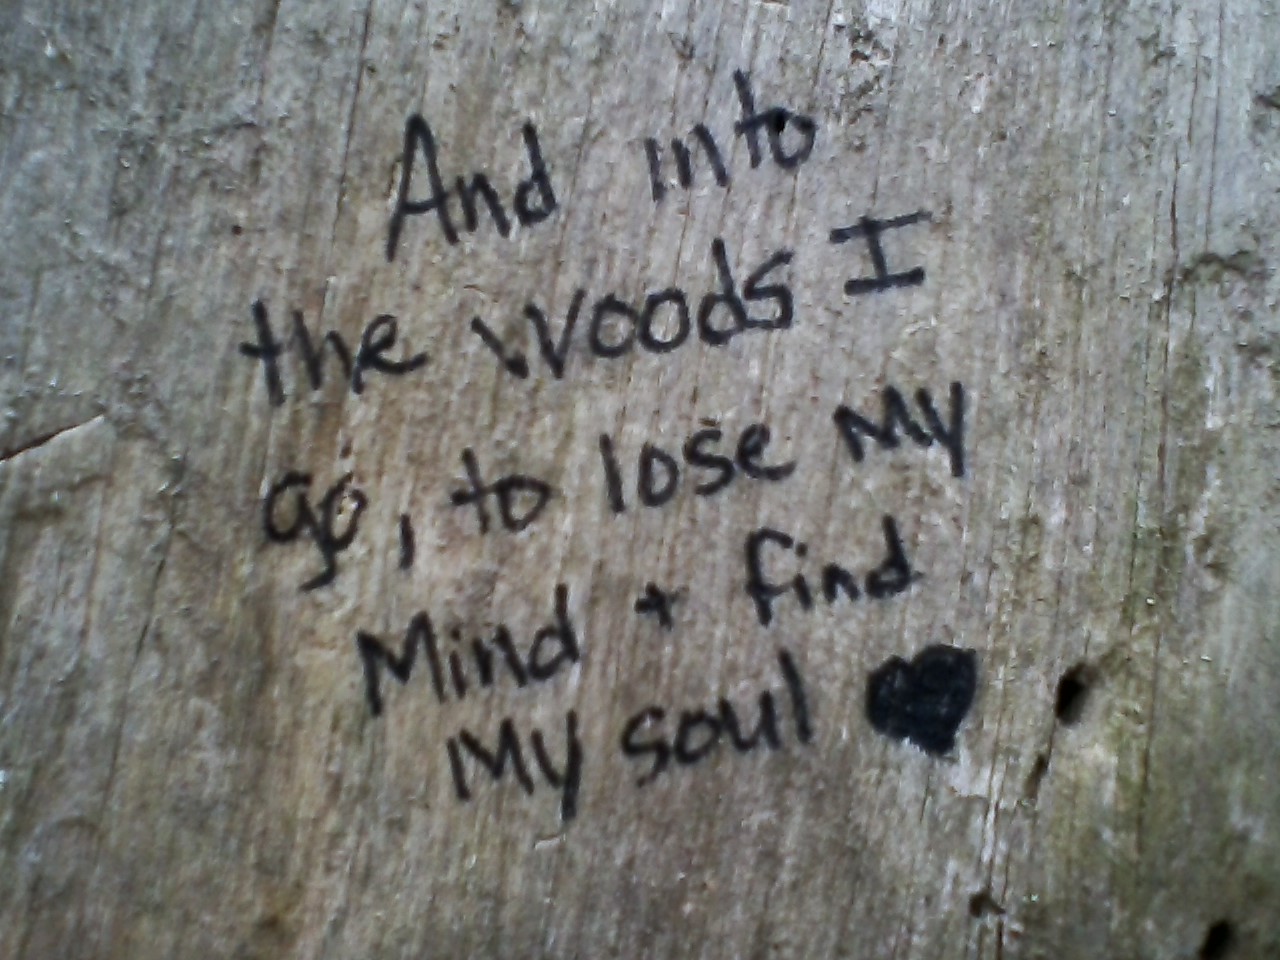 And into
the woods I
go, to lose My
Mind + find
My soul ♥